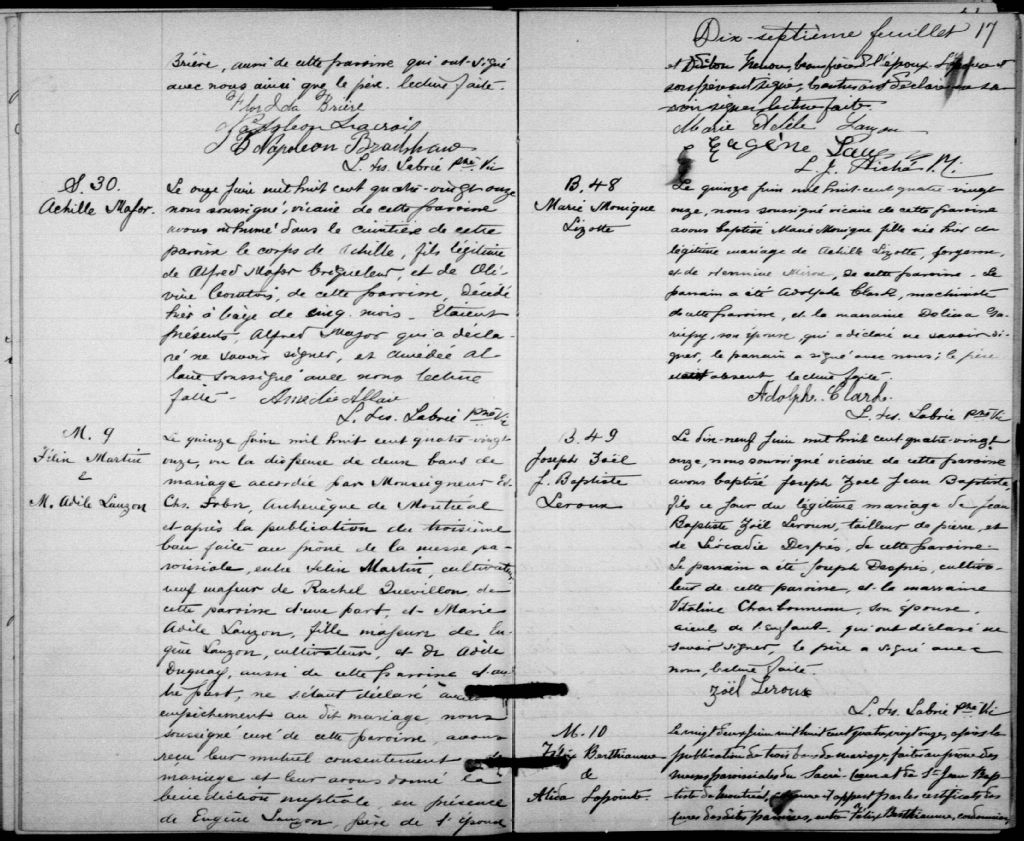 Brière, aussi de cette paroisse qui ont signé
avec nous ainsi que le père. lecture faite.
Florida Brière
Napoleon Lacroix
Napoleon Bradshaw
L. Jos. Labrie ptre Vic
S. 30.
Achille Major.
Le onze Juin mil huit cent quatre-vingt onze
nous soussigné, vicaire de cette paroisse
avons inhumé dans le cimetière de cette
paroisse le corps de Achille, fils légitime
de Alfred Major briqueleur, et de Oli-
vine Comtois, de cette paroisse, décédé
hier à l'age de cinq mois. Etaient
présents, Alfred Major qui a décla-
ré ne savoir signer, et Amédée Al
laire soussigné avec nous lecture
faite. Amedée Allaire
L. Jos. Labrie Ptre Vic
M. 9
Félix Martin
&
M. Adèle Lauzon
Le quinze Juin mil huit cent quatre-vingt
onze, vu la dispense de deux bans de
mariage accordée par Monseigneur Ed.
Chs. Fabre, Archevêque de Montréal
et après la publication du troisième
ban faite au prône de la messe pa-
roissiale, entre Félix Martin, cultivateur
veuf majeur de Rachel Quévillon, de
cette paroisse d'une part, et Marie
Adèle Lauzon, fille majeure de Eu-
gène Lauzon, cultivateur, et de Adèle
Duquay, aussi de cette paroisse d'au-
tre part, ne s'étant déclaré aucun
empêchement au dit mariage nous
soussigné curé de cette paroisse, avons
reçu leur mutuel consentement de
mariage et leur avons donné la
bénédiction nuptiale, en présence
de Eugène Lauzon, père de l'épouse
Dix-septième feuillet 17
et beau frère de l'époux. L'épouse et
son père ont signé, les autres ont déclaré ne sa-
voir signer lecture faite.
Marie Adèle Lauzon
Eugène Lauzon
L. J. Piché P.
B. 48
Marie Monique
Lizotte
Le quinze Juin mil huit-cent quatre-vingt
onze, nous soussigné vicaire de cette paroisse
avons baptisé Marie Monique fille née hier du
légitime mariage de Achille Lizotte, forgeron,
et de Hermine Miron, de cette paroisse. Le
parrain a été Adolphe Clark, machiniste
de cette paroisse, et la marraine Dolina Ga-
riépy, son épouse, qui a déclaré ne savoir si-
gner, le parrain a signé avec nous; le père
était absent. lecture faite.
Adolph. Clark.
L. Jos. Labrie Ptre Vic
B. 49
Joseph Zoël
J. Baptiste
Leroux
Le dix-neuf Juin mil huit cent quatre-vingt
onze, nous soussigné vicaire de cette paroisse
avons baptisé Joseph Zoel Jean Baptiste
fils né ce jour du légitime mariage de Jean
Baptiste Zoël Leroux, tailleur de pierre, et
de Léocadie Després, de cette paroisse.
Le parrain a été Joseph Després, cultiva-
teur de cette paroisse, et la marraine
Vitaline Charbonneau, son épouse,
aieuls de l'enfant. qui ont déclaré ne
savoir signer, le père a signé avec
nous, lecture faite.
Zoël Leroux
L. Jos. Labrie Ptre Vic
M. 10
Félix Berthiaume
&
Alida Lapointe.
Le vingt deux Juin mil huit cent quatre vingt onze, après la
publication de trois bans de mariage faite au prône des
messes paroissiales du Sacré-Coeur et de St Jean Bap-
tiste de Montréal, comme il appert par les certificats des
curés des dites paroisses, entre Félix Berthiaume, cordonnier,